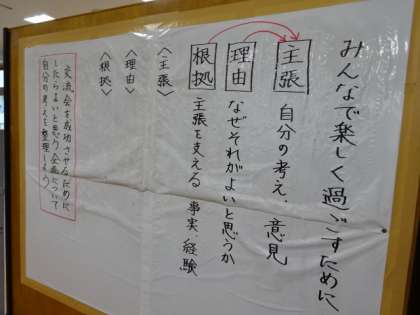 みんなで楽しく過ごすために
主張 自分の考え、意見
理由 なぜそれがよいと思うか
根拠 主張を支える 事実、経験
〈主張〉
〈理由〉
〈根拠〉
交流会を成功させるために
したらよいと思う企画について
自分の考えを整理しよう。